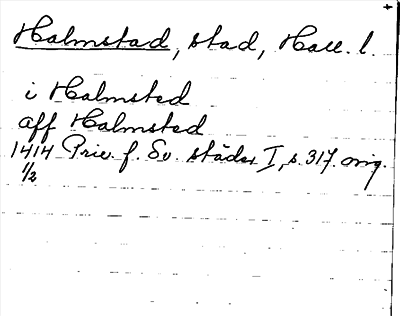 Halmstad, stad, Hall. l.
i Halmsted
aff Halmsted
1414 Priv. f. Sv. städer I, s. 317. orig.
1/2